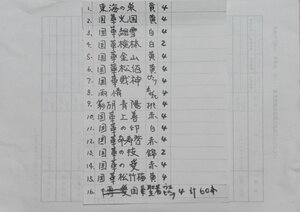 1. 東海の泉 黄 4
2. 国華光国 黄 4
3. 国華朝雪 白 4
4. 国華横綱 白 2
5. 国華金山 黄 4
6. 国華松伯 黄 4
7. 国華戦神 ピンク 4
8. 雨情 4
9. 彩胡青陽 桃 4
10. 国華上善 赤 4
11. 国華の印 白 4
12. 国華寿 赤 4
13. 国華の技 錦 2
14. 国華の愛 赤 4
15. 国華松竹梅 黄 4
16. 国華 4 計60本